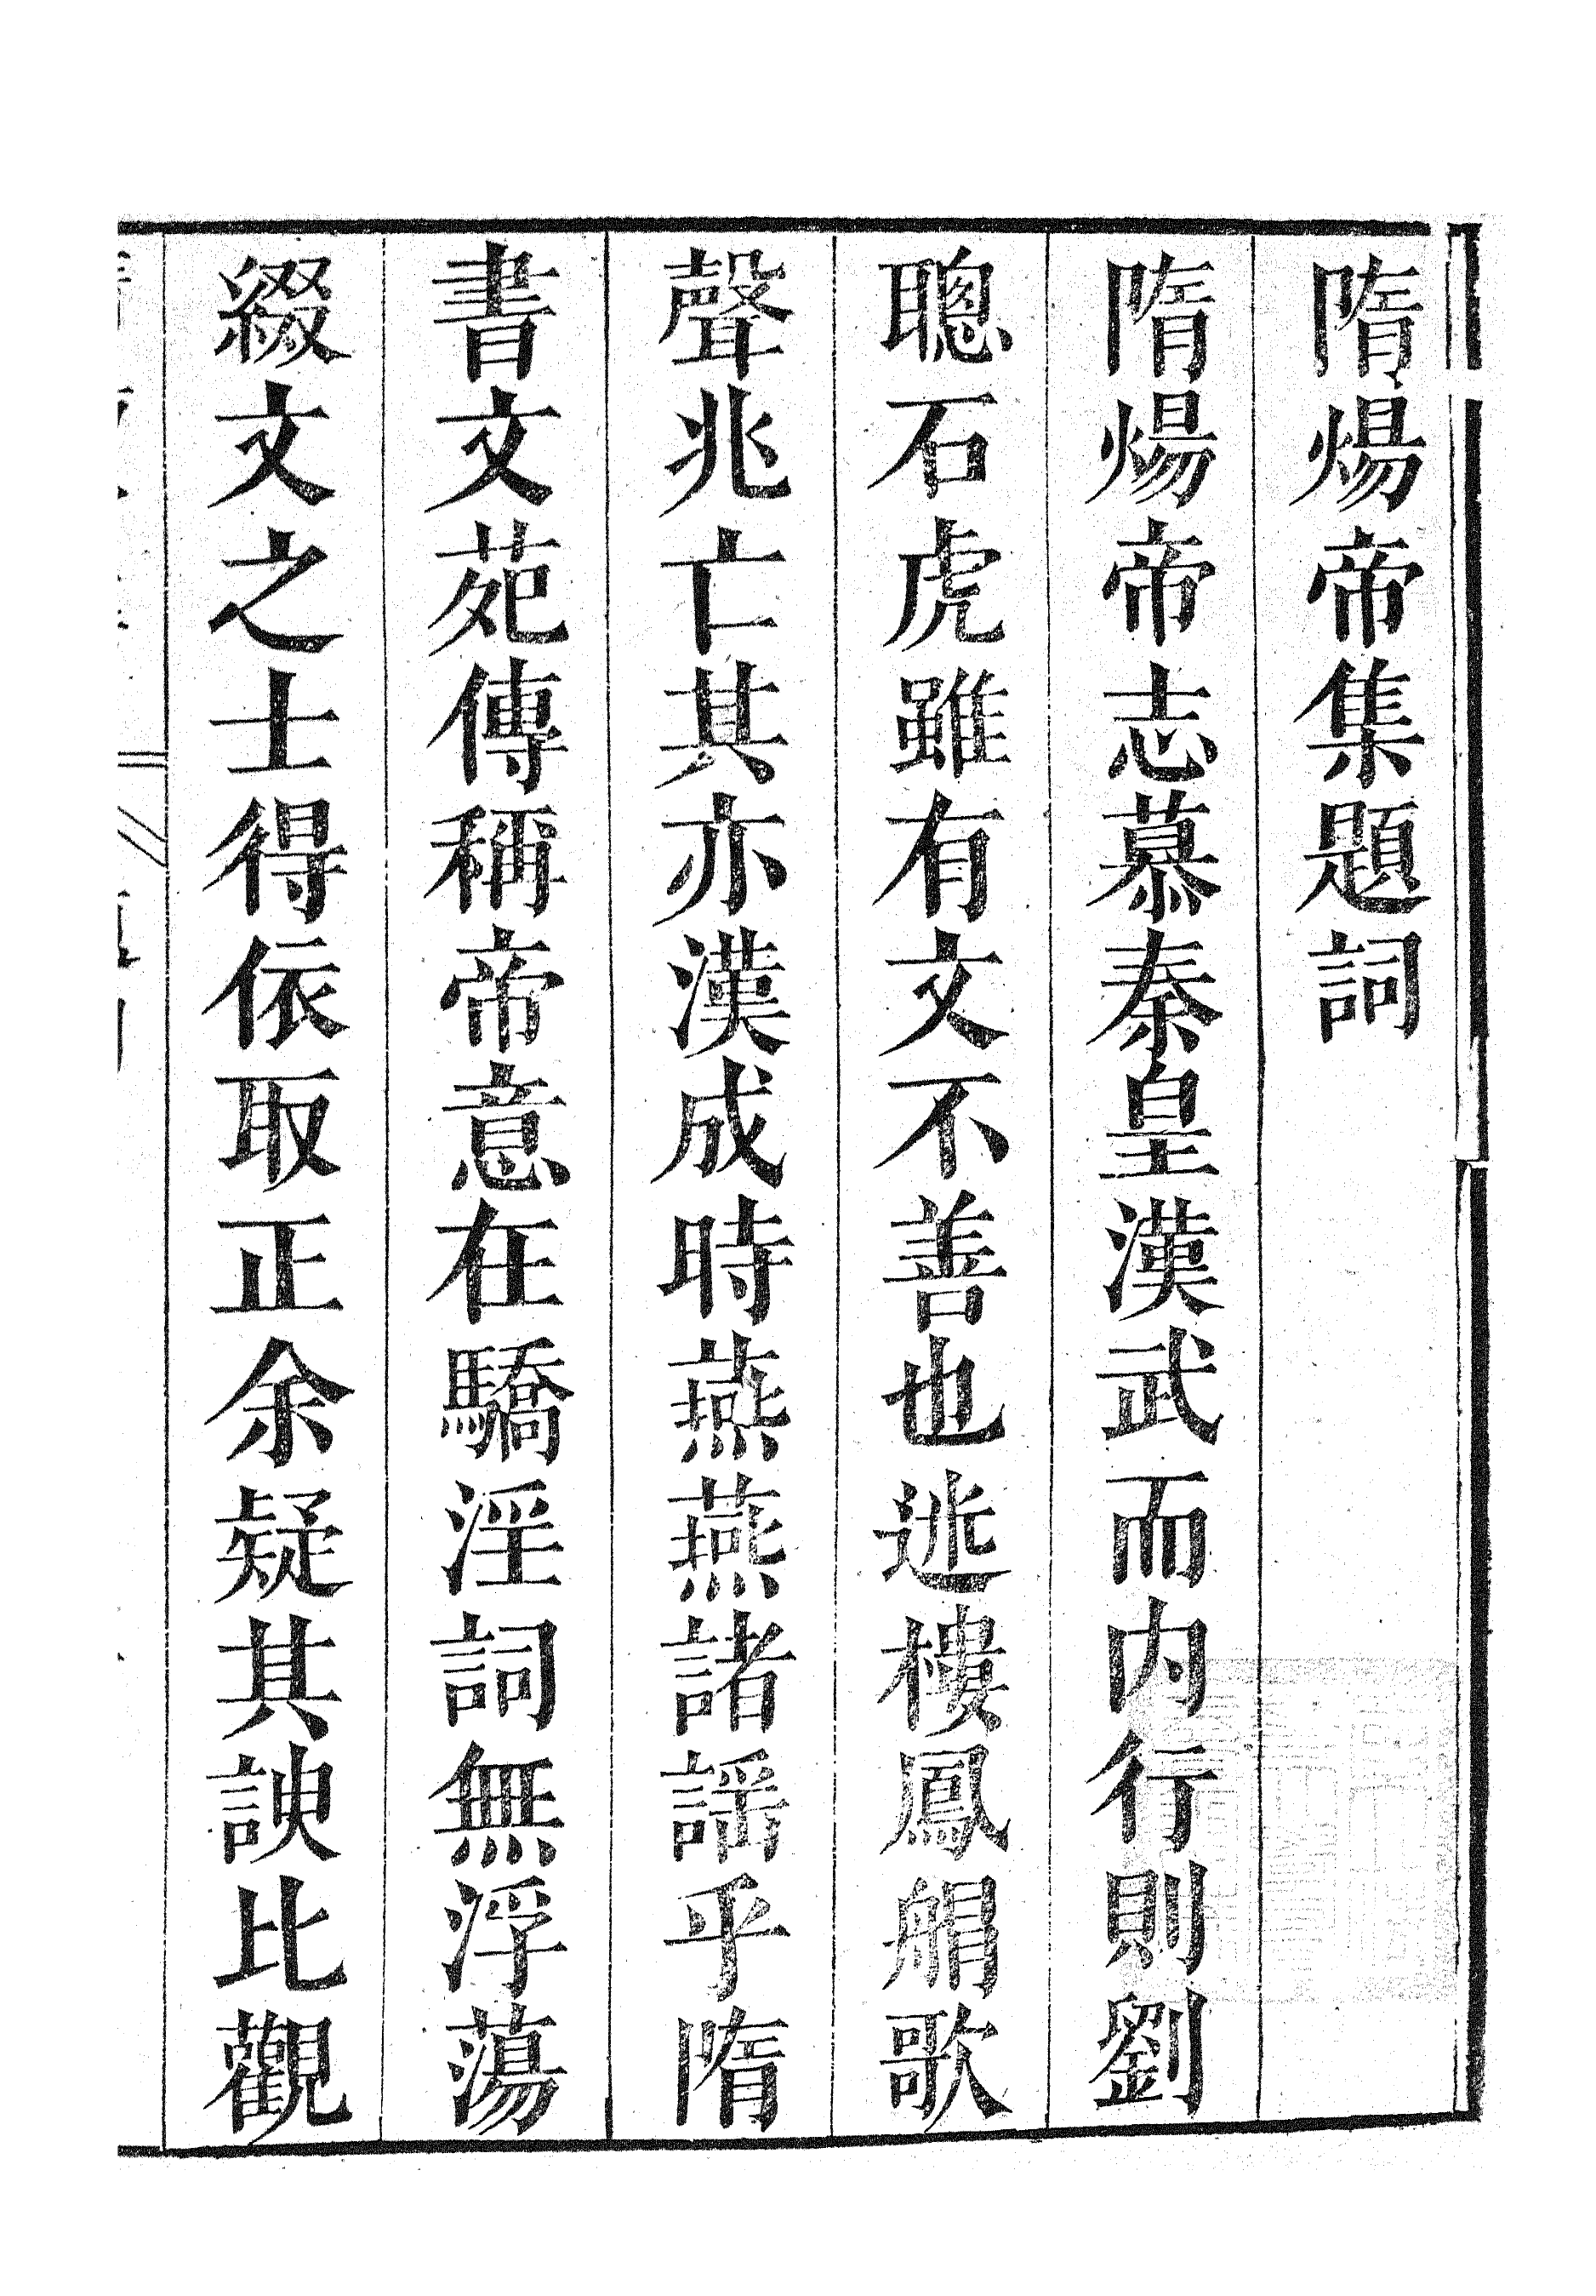 隋煬帝集題詞
隋煬帝志慕秦皇漢武而内行則劉
聰石虎雖有文不善也迷樓鳳艒歌
聲兆亡其亦漢成時燕燕諸謡乎隋
書文苑傳稱帝意在驕淫詞無浮蕩
綴文之士得依取正余疑其諛比觀